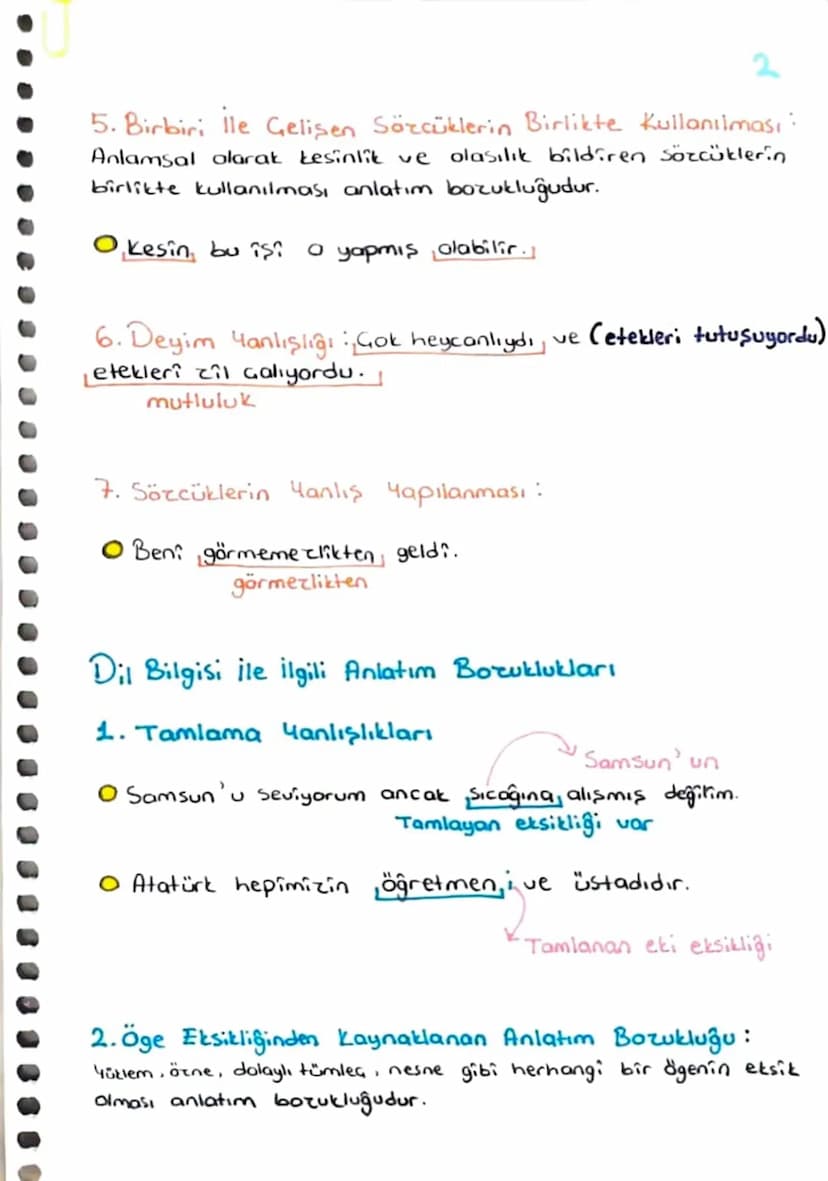 2
5. Birbiri İle Gelişen Sözcüklerin Birlikte Kullanılması:
Anlamsal olarak kesinlik ve olasılık bildiren sözcüklerin
birlikte kullanılması anlatım bozukluğudur.
Kesin, bu işi o yapmış olabilir.
6. Deyim Yanlışlığı: Çok heycanlıydı ve (etekleri tutuşuyordu)
etekleri zil çalıyordu.
mutluluk
7. Sözcüklerin Yanlış Yapılanması:
Beni görmemezlikten geldi.
görmezlikten
Dil Bilgisi ile ilgili Anlatım Bozuklukları
1. Tamlama Yanlışlıkları
Samsun'un
Samsun'u seviyorum ancak sıcağına alışmış değilim.
Tamlayan eksikliği var
Atatürk hepimizin öğretmeni ve üstadıdır.
Tamlanan eki eksikliği
2. Öge Eksikliğinden Kaynaklanan Anlatım Bozukluğu:
Yüklem, özne, dolaylı tümleç, nesne gibi herhangi bir ögenin eksik
olması anlatım bozukluğudur.